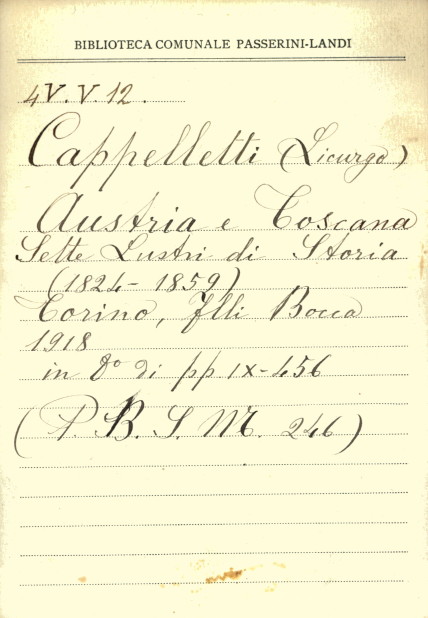 BIBLIOTECA COMUNALE PASSERINI-LANDI
4V.V.12.
Cappelletti (Licurgo)
Austria e Toscana
Sette Lustri di Storia
(1824-1859)
Torino, Flli Bocca
1918
in 8º di pp IX-456
(P. B. S. M. 246)